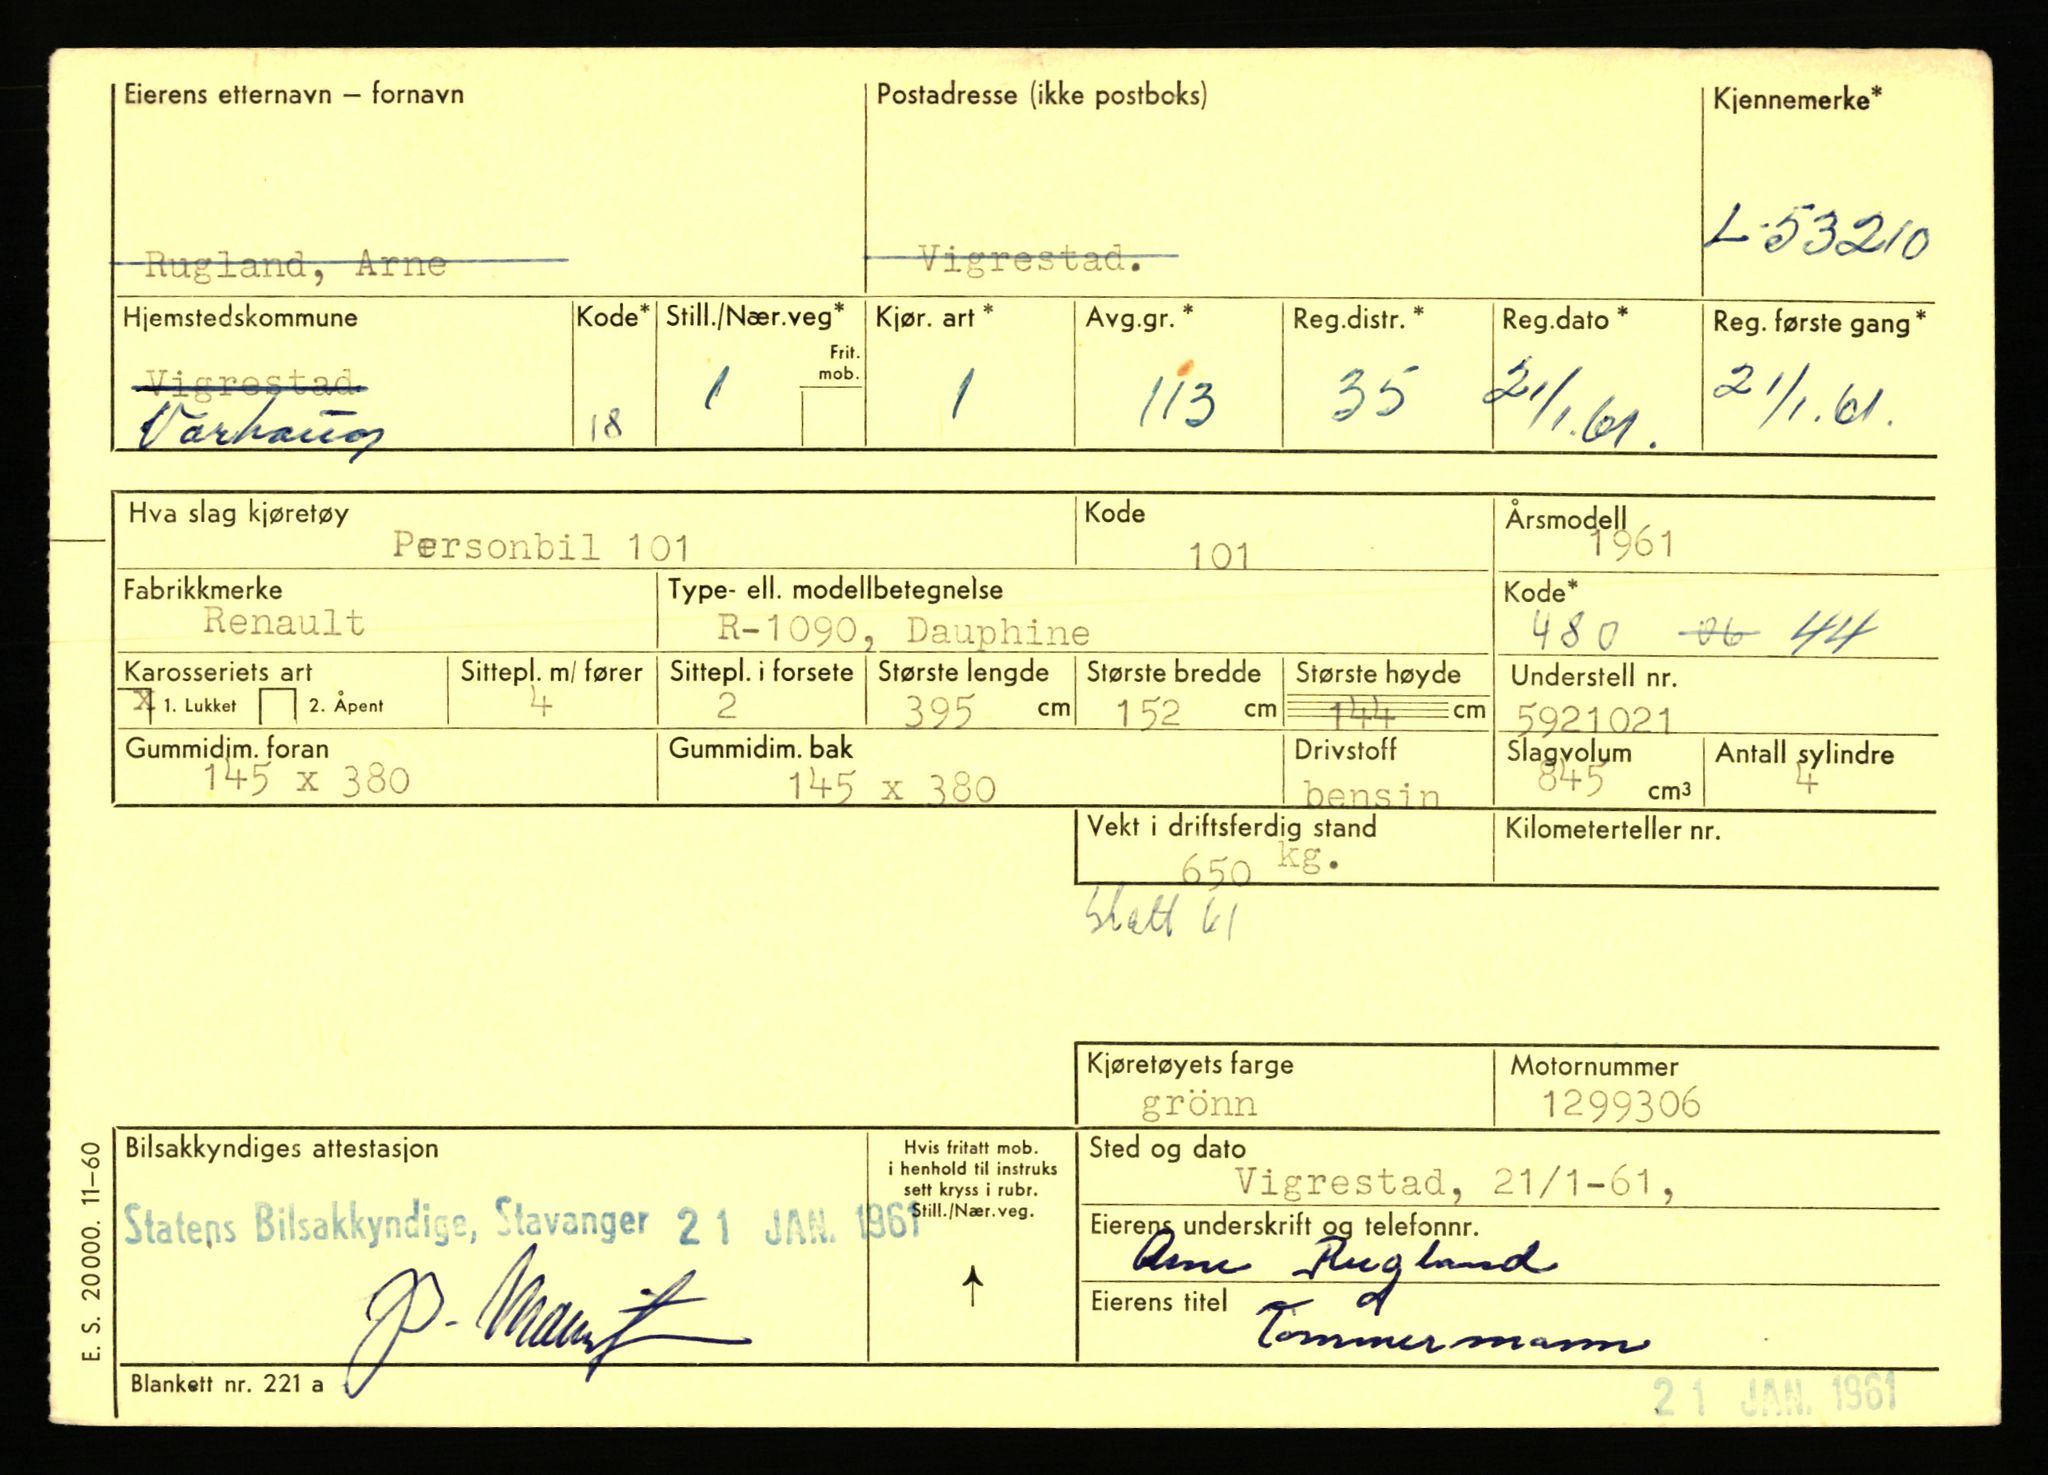 Eierens etternavn – fornavn Postadresse (ikke postboks) Kjennemerke*
Rugland, Arne Vigrestad. L-53210
Hjemstedskommune Kode* Still./Nær.veg* Kjør. art * Avg.gr. * Reg.distr. * Reg.dato * Reg. første gang*
Frit.
mob.
Vigrestad
Varhaug 18 1 1 113 35 21/1.61. 21/1.61.
Hva slag kjøretøy Kode Årsmodell
Personbil 101 101 1961
Fabrikkmerke Type- ell. modellbetegnelse Kode*
Renault R-1090, Dauphine 480 06 44
Karosseriets art Sittepl. m/ fører Sittepl. i forsete Største lengde Største bredde Største høyde Understell nr.
X 1. Lukket 2. Åpent 4 2 395 cm 152 cm 144 cm 5921021
Gummidim. foran Gummidim. bak Drivstoff Slagvolum Antall sylindre
145 x 380 145 x 380 bensin 845 cm3 4
Vekt i driftsferdig stand Kilometerteller nr.
650 kg.
skatt 61
Kjøretøyets farge Motornummer
grönn 1299306
Bilsakkyndiges attestasjon Hvis fritatt mob. Sted og dato
i henhold til instruks
sett kryss i rubr.
Still./Nær.veg.
Vigrestad, 21/1-61,
Statens Bilsakkyndige, Stavanger 21 JAN. 1961
Eierens underskrift og telefonnr.
Arne Rugland
Eierens titel
Tömmermann
Blankett nr. 221 a
21 JAN. 1961
E. S. 20000. 11–60